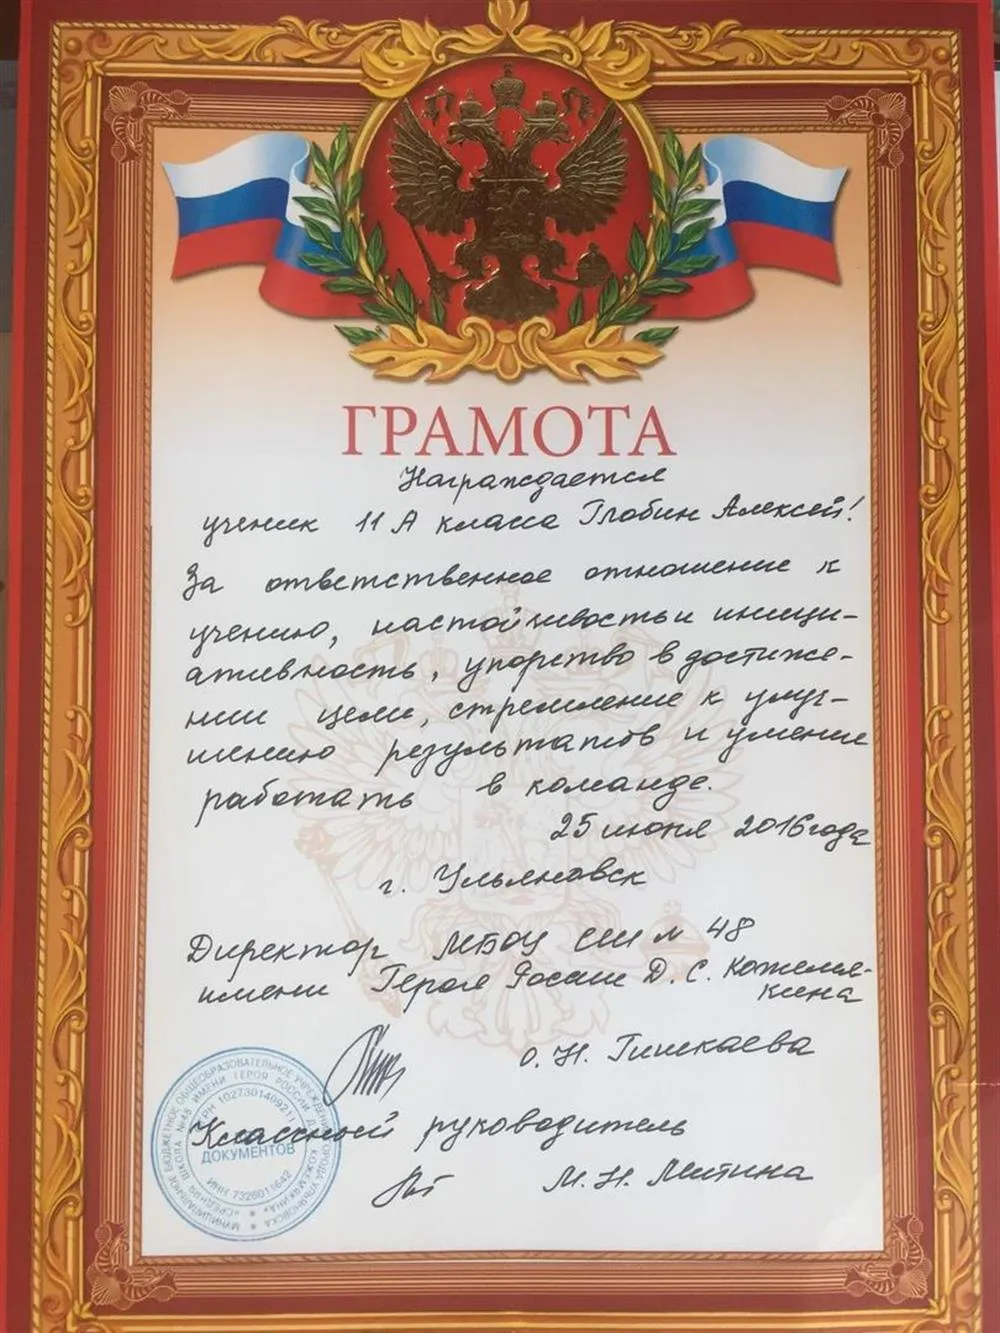 ГРАМОТА
Награждается
ученик 11 А класса Глобин Алексей!
За ответственное отношение к
учению, настойчивость и иници-
ативность, упорство в достиже-
нии цели, стремление к улуч-
шению результатов и умение
работать в команде.
25 июня 2016 года
г. Ульяновск
Директор МБОУ СШ № 48
имени Героя России Д. С. Кожемя-
кина
О. Н. Гишкаева
Классный руководитель
М. Н. Митина
МУНИЦИПАЛЬНОЕ БЮДЖЕТНОЕ ОБЩЕОБРАЗОВАТЕЛЬНОЕ УЧРЕЖДЕНИЕ ГОРОДА УЛЬЯНОВСКА
«СРЕДНЯЯ ШКОЛА №48 ИМЕНИ ГЕРОЯ РОССИИ Д.С. КОЖЕМЯКИНА»
ДОКУМЕНТОВ
ИНН 7326011642